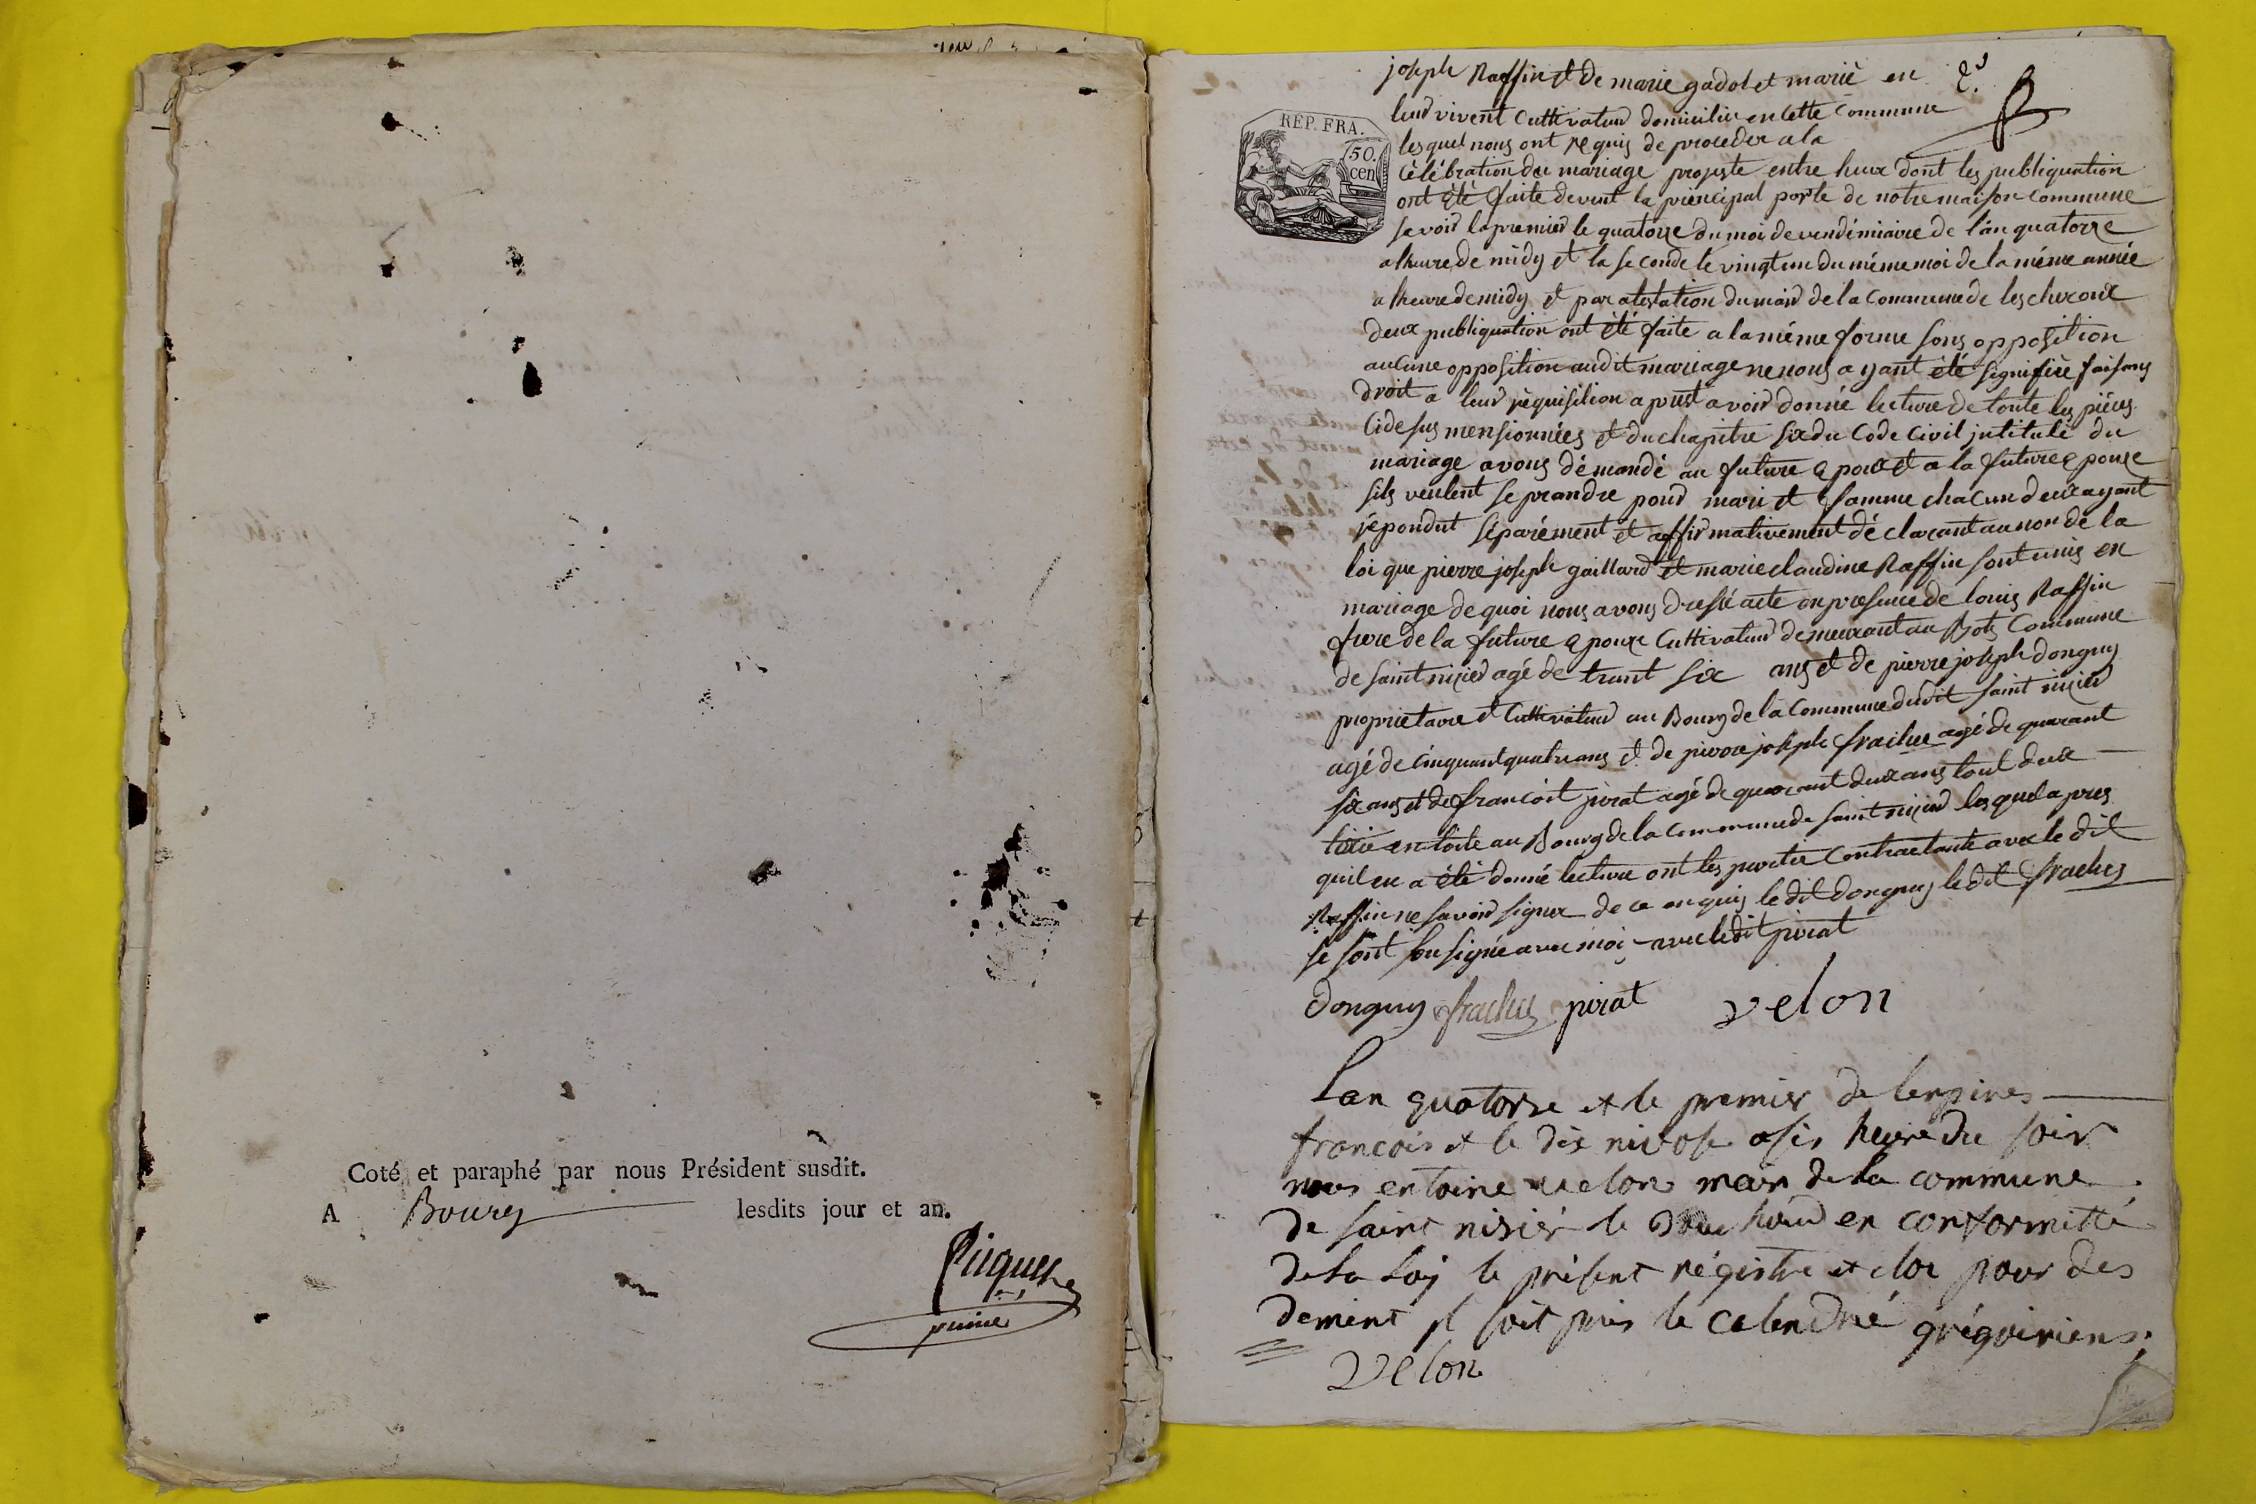 Coté et paraphé par nous Président susdit.
A Bourg lesdits jour et an.
Picquet
joseph Raffin et de marie gadolet mariè en
leur vivent Cultivateur domicilié en cette Commune
lesquel nous ont requis de proceder a la
Célébration du mariage projete entre heux dont les publiquation
ont été faite devent la principal porte de notre maison Commune
savoir la premier le quatorze du moi de vendémiaire de l'an quatorze
a lheure de midy et la seconde le vingt un du méme moi de la méme année
a lheure de midy et par atestation du mair de la Commune de lescheroux
deux publiquation ont été faite a la méme forme sons opposition
aucune opposition audit mariage ne nous ayant été signifiée faisons
droit a leur réquisition apres avoir donné lecture de toute les piéces
Cidesus mensionnées et du chapitre six du Code Civil jntitulé du
mariage avons démandé au future epoux et a la future epouze
sils veulent se prandre pour mari et famme chacun deux ayant
répondut séparément et affirmativement déclarant au nom de la
loi que pierre joseph gaillard et marie claudine Raffin sont unis en
mariage de quoi nous avons dressé acte en presence de louis Raffin
frere de la future epouze Cultivateur demeurant au Bois Commune
de saint nizier agé de trant six ans et de pierre joseph donguy
proprietaire et Cultivateur au Bourg de la Commune dudit saint nizier
agé de cinquant quatre ans et de pierre joseph frachet agé de quarant
six ans et de francoit pirat agé de quarant deux ans tout deux
au Bourg de la Commune de saint nizier lesquel apres
quil en a été donné lecture ont les partie Contractante avec le dit
Raffin ne savoir signer de ce enquis le dit donguy le dit frachet
se sont sousigné avec moi avec ledit pirat
donguy frachet pirat velon
REP. FRA.
50.
cen
Lan quatorze et le premier de lenpires
francois et le dix nivose asis heure du soir
nous entoine velon mair de la commune
de saint nisiér le Bouchoud en conformitté
de la Loij le présent régistre et clor pour des
dement jl soit pris le calendrié grégoiriens;
velon